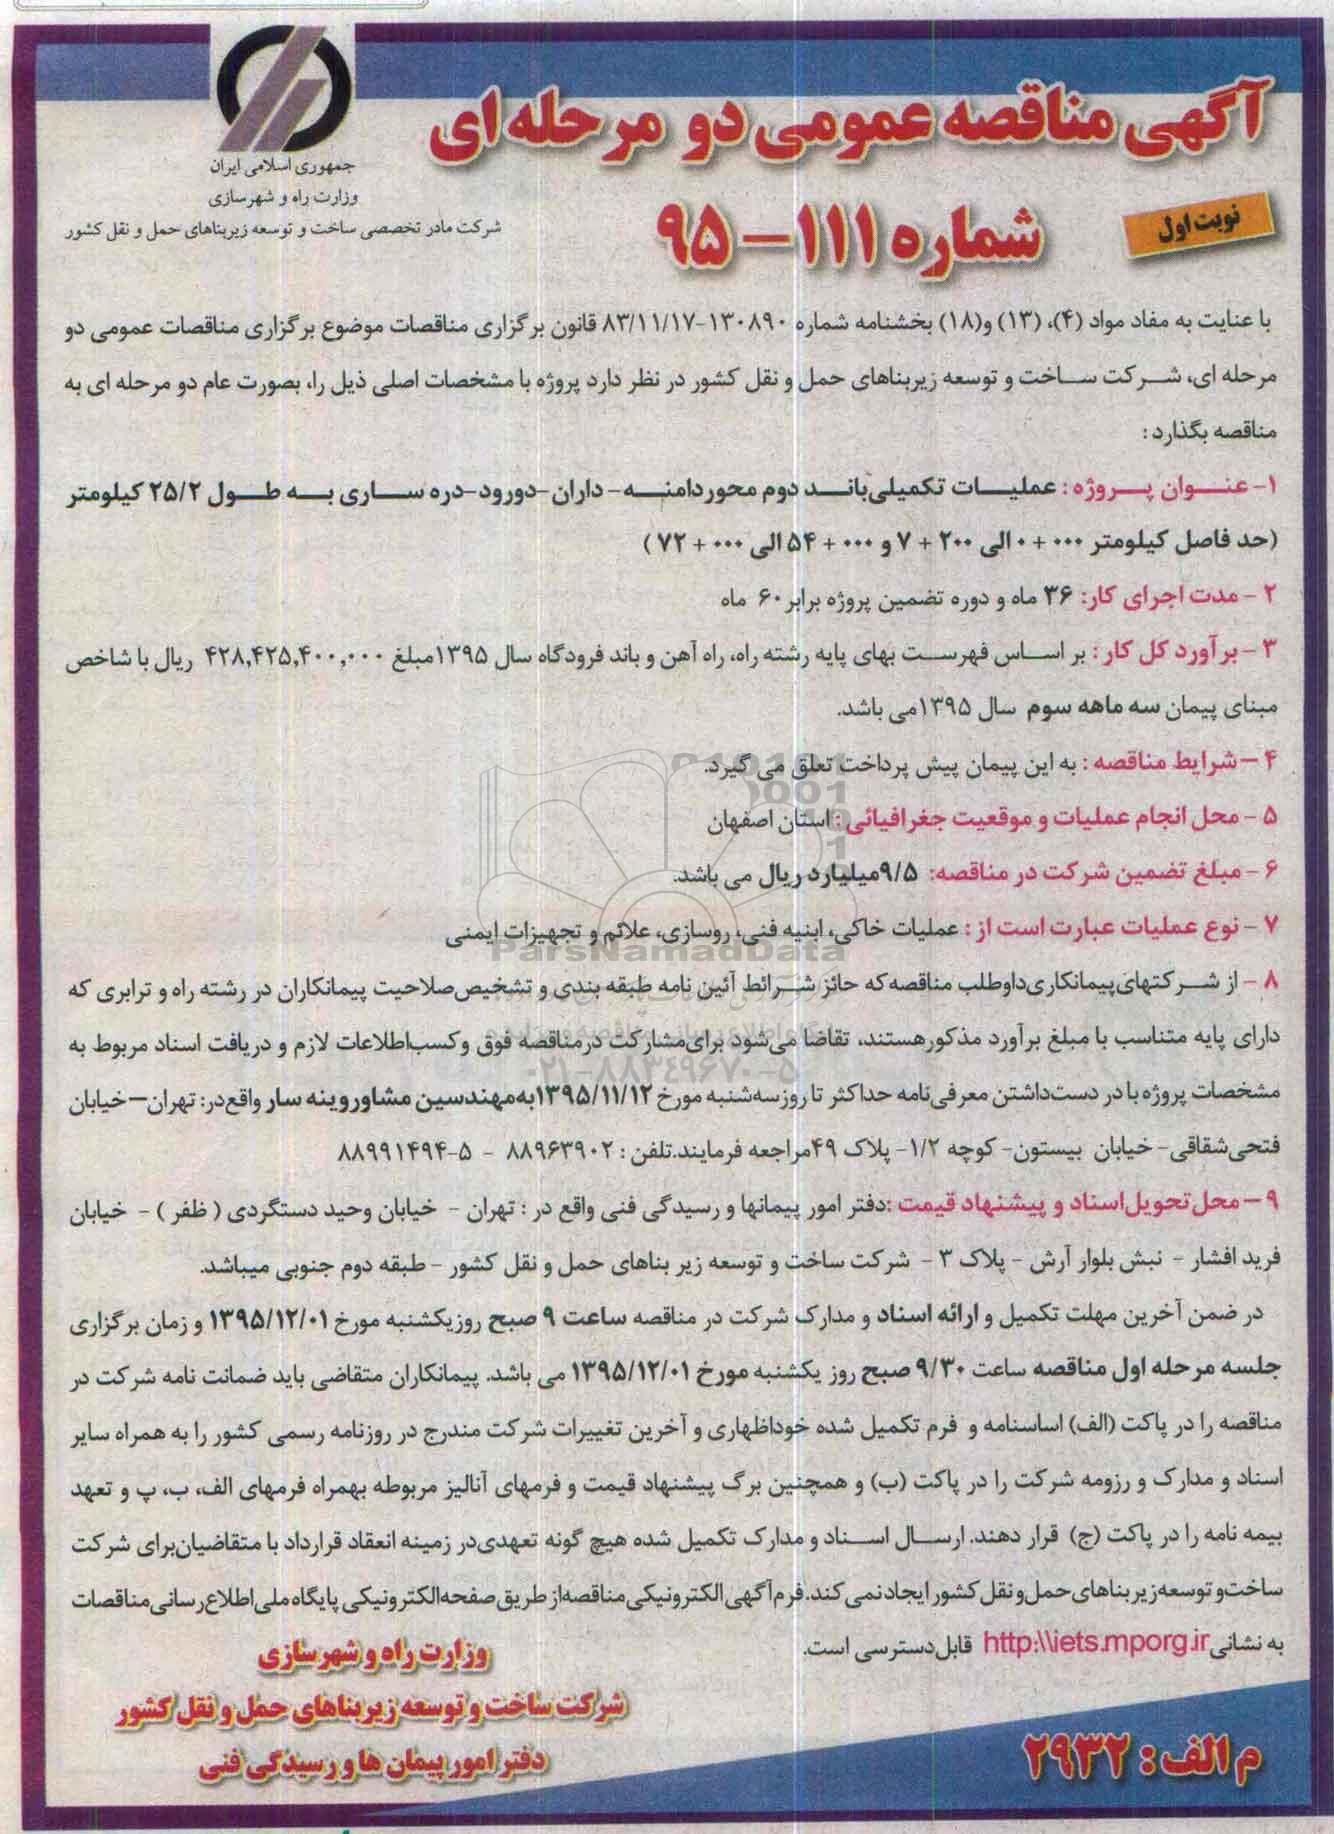 آگهی مناقصه عمومی دو مرحله ای
شماره ۱۱۱ – ۹۵
نوبت اول
جمهوری اسلامی ایران
وزارت راه و شهرسازی
شرکت مادر تخصصی ساخت و توسعه زیربناهای حمل و نقل کشور
با عنایت به مفاد مواد (۴)، (۱۳) و(۱۸) بخشنامه شماره ۱۳۰۸۹۰-۸۳/۱۱/۱۷ قانون برگزاری مناقصات موضوع برگزاری مناقصات عمومی دو
مرحله ای، شرکت ساخت و توسعه زیربناهای حمل و نقل کشور در نظر دارد پروژه با مشخصات اصلی ذیل را، بصورت عام دو مرحله ای به
مناقصه بگذارد :
۱- عنوان پروژه : عملیات تکمیلی باند دوم محور دامنه – داران -دورود-دره ساری به طول ۲۵/۲ کیلومتر
(حد فاصل کیلومتر ۰۰۰ + ۰ الی ۲۰۰ + ۷ و ۰۰۰ + ۵۴ الی ۰۰۰ + ۷۲ )
۲ - مدت اجرای کار: ۳۶ ماه و دوره تضمین پروژه برابر ۶۰ ماه
۳ - برآورد کل کار : بر اساس فهرست بهای پایه رشته راه، راه آهن و باند فرودگاه سال ۱۳۹۵ مبلغ ۴۲۸,۴۲۵,۴۰۰,۰۰۰ ریال با شاخص
مبنای پیمان سه ماهه سوم سال ۱۳۹۵ می باشد.
۴ – شرایط مناقصه : به این پیمان پیش پرداخت تعلق می گیرد.
۵ - محل انجام عملیات و موقعیت جغرافیائی : استان اصفهان
۶ - مبلغ تضمین شرکت در مناقصه: ۹/۵ میلیارد ریال می باشد.
۷ - نوع عملیات عبارت است از : عملیات خاکی، ابنیه فنی، روسازی، علائم و تجهیزات ایمنی
ParsNamadData
۸ - از شرکتهای پیمانکاری داوطلب مناقصه که حائز شرائط آئین نامه طبقه بندی و تشخیص صلاحیت پیمانکاران در رشته راه و ترابری که
دارای پایه متناسب با مبلغ برآورد مذکور هستند، تقاضا می شود برای مشارکت در مناقصه فوق و کسب اطلاعات لازم و دریافت اسناد مربوط به
۰۲۱-۸۸۳۴۹۶۷۰-۵
مشخصات پروژه با در دست داشتن معرفی نامه حداکثر تا روز سه شنبه مورخ ۱۳۹۵/۱۱/۱۲ به مهندسین مشاور وینه سار واقع در: تهران – خیابان
فتحی شقاقی - خیابان بیستون - کوچه ۱/۲ - پلاک ۴۹ مراجعه فرمایند.تلفن : ۸۸۹۶۳۹۰۲ - ۵-۸۸۹۹۱۴۹۴
۹ – محل تحویل اسناد و پیشنهاد قیمت : دفتر امور پیمانها و رسیدگی فنی واقع در : تهران - خیابان وحید دستگردی ( ظفر ) - خیابان
فرید افشار - نبش بلوار آرش - پلاک ۳ - شرکت ساخت و توسعه زیر بناهای حمل و نقل کشور - طبقه دوم جنوبی میباشد.
در ضمن آخرین مهلت تکمیل و ارائه اسناد و مدارک شرکت در مناقصه ساعت ۹ صبح روز یکشنبه مورخ ۱۳۹۵/۱۲/۰۱ و زمان برگزاری
جلسه مرحله اول مناقصه ساعت ۹/۳۰ صبح روز یکشنبه مورخ ۱۳۹۵/۱۲/۰۱ می باشد. پیمانکاران متقاضی باید ضمانت نامه شرکت در
مناقصه را در پاکت (الف) اساسنامه و فرم تکمیل شده خوداظهاری و آخرین تغییرات شرکت مندرج در روزنامه رسمی کشور را به همراه سایر
اسناد و مدارک و رزومه شرکت را در پاکت (ب) و همچنین برگ پیشنهاد قیمت و فرمهای آنالیز مربوطه بهمراه فرمهای الف، ب، پ و تعهد
بیمه نامه را در پاکت (ج) قرار دهند. ارسال اسناد و مدارک تکمیل شده هیچ گونه تعهدی در زمینه انعقاد قرارداد با متقاضیان برای شرکت
ساخت و توسعه زیر بناهای حمل و نقل کشور ایجاد نمی کند. فرم آگهی الکترونیکی مناقصه از طریق صفحه الکترونیکی پایگاه ملی اطلاع رسانی مناقصات
به نشانی http:\\iets.mporg.ir قابل دسترسی است.
وزارت راه و شهرسازی
شرکت ساخت و توسعه زیربناهای حمل و نقل کشور
دفتر امور پیمان ها و رسیدگی فنی
م الف : ۲۹۳۲